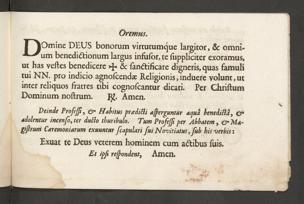 Oremus.
Domine DEUS bonorum virtutumque largitor, & omni-
um benedictionum largus infusor, te suppliciter exoramus,
ut has vestes benedicere ✠ & sanctificare digneris, quas famuli
tui NN. pro indicio agnoscendæ Religionis, induere volunt, ut
inter reliquos fratres tibi cognoscantur dicati. Per Christum
Dominum nostrum. ℟. Amen.
Deinde Professi, & Habitus prædicti asperguntur aquâ benedictâ, &
adolentur incenso, ter ducto thuribulo. Tum Professi per Abbatem, & Ma-
gistrum Cæremoniarum exuuntur scapulari sui Novitiatus, sub his verbis:
Exuat te Deus veterem hominem cum actibus suis.
Et ipsi respondent, Amen.